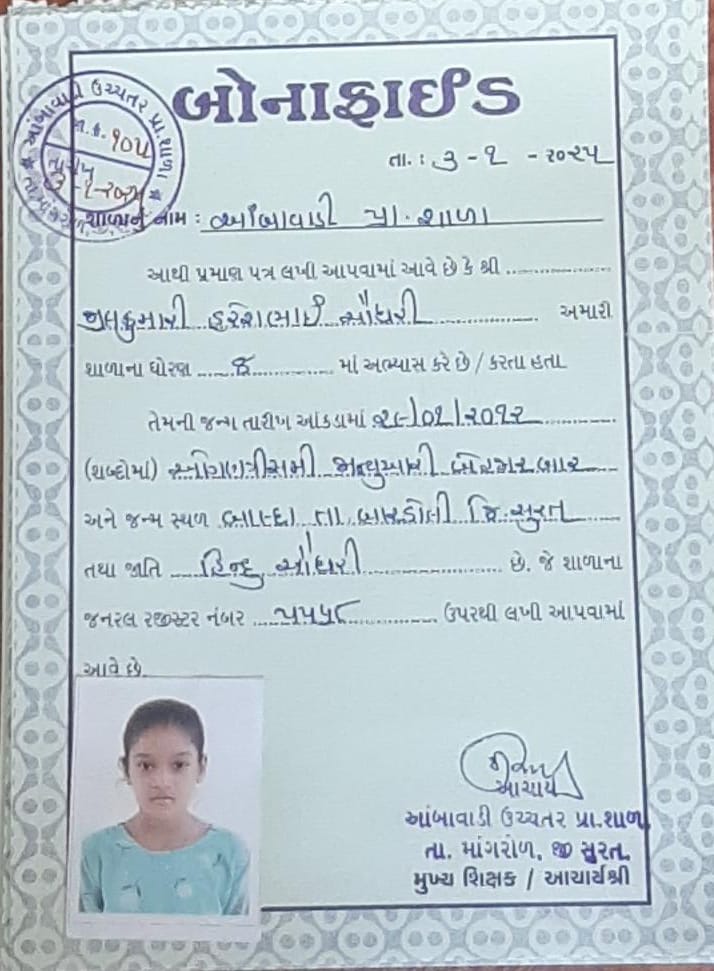 આંબાવાડી ઉચ્ચતર પ્રા.શાળા
જા.ક. ૧૦૫
તારીખ
૩-૧-૨૦૨૫
બોનાફાઈડ
તા. : ૩ - ૧ - ૨૦૨૫
શાળાનું નામ : આંબાવાડી પ્રા. શાળા
આથી પ્રમાણ પત્ર લખી આપવામાં આવે છે કે શ્રી
હરેશભાઈ ચૌધરી અમારી
શાળાના ધોરણ માં અભ્યાસ કરે છે / કરતા હતા
તેમની જન્મ તારીખ આંકડામાં ૨૯/૦૧/૨૦૧૨
(શબ્દોમાં) ઓગણત્રીસમી જાન્યુઆરી બેહજાર બાર
અને જન્મ સ્થળ તા. બારડોલી જિ. સુરત
તથા જાતિ હિન્દુ ચૌધરી છે. જે શાળાના
જનરલ રજીસ્ટર નંબર ૫૫૫૮ ઉપરથી લખી આપવામાં
આવે છે.
આચાર્ય
આંબાવાડી ઉચ્ચતર પ્રા.શાળા
તા. માંગરોળ, જી સુરત.
મુખ્ય શિક્ષક / આચાર્યશ્રી